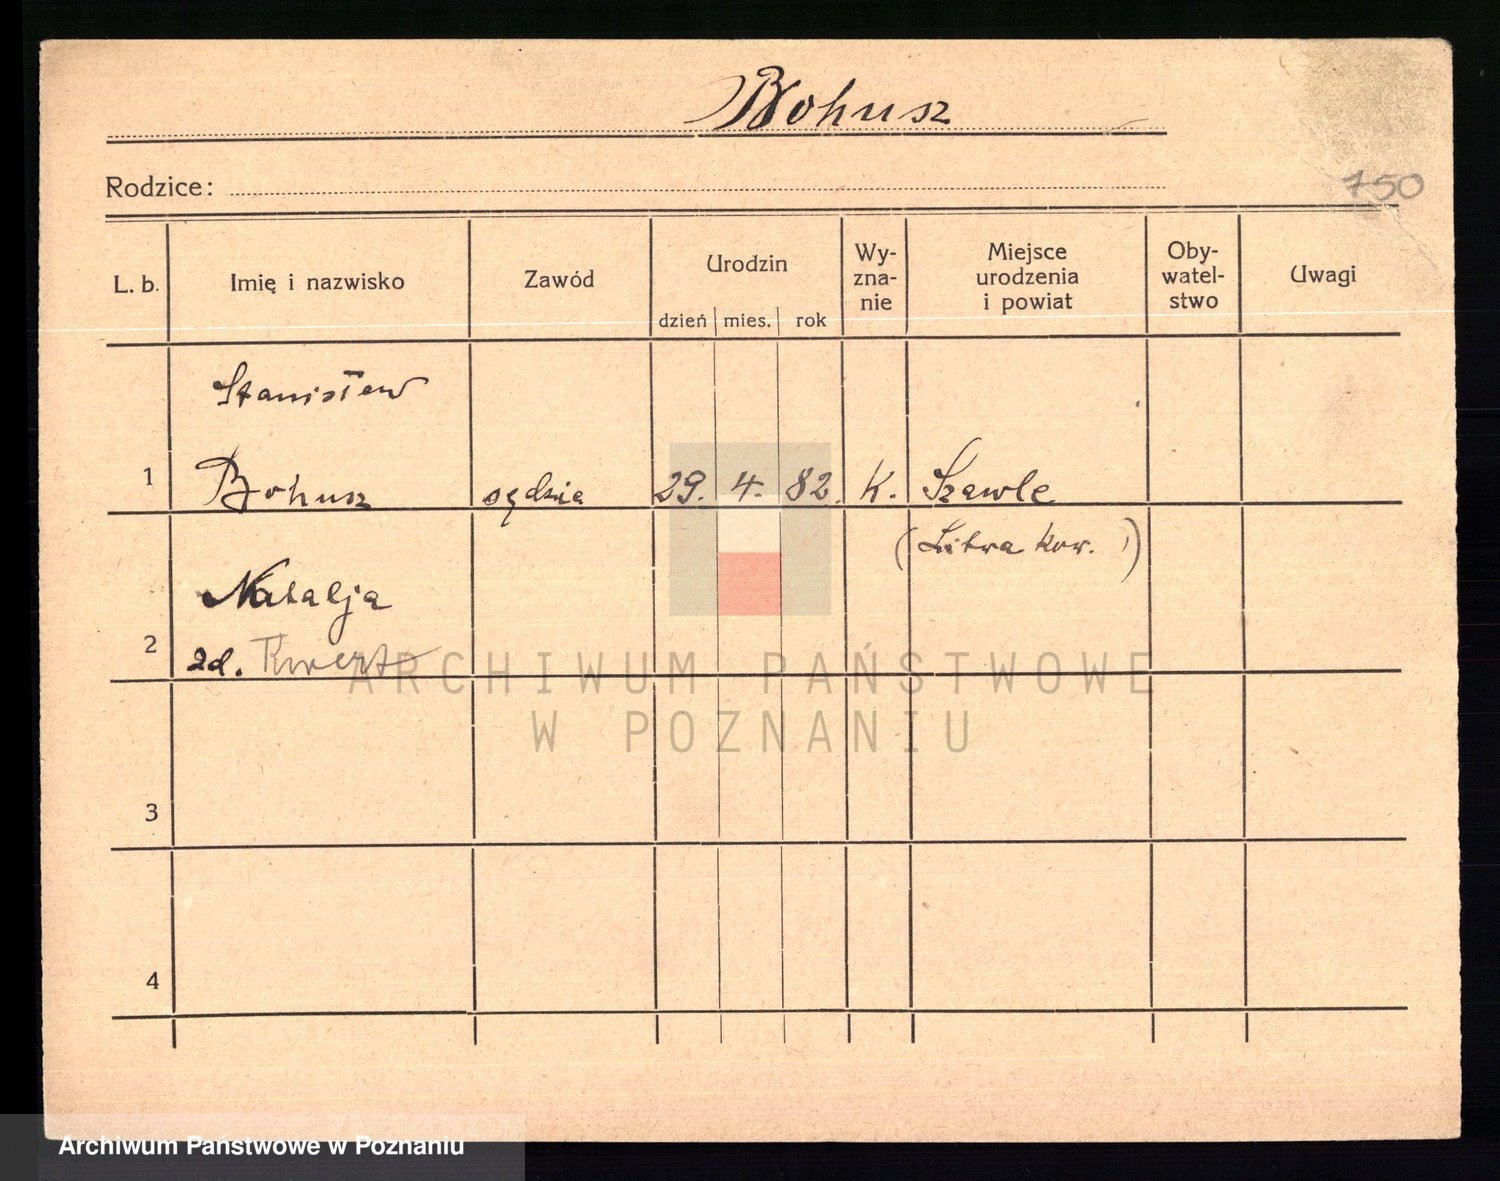 Bohusz
Rodzice:
750
L. b. Imię i nazwisko Zawód Urodzin dzień mies. rok Wy-zna-nie Miejsce urodzenia i powiat Oby-watel-stwo Uwagi
Stanisław
1 Bohusz sędzia 29. 4. 82. K. Szawle
(Litwa Kow.)
Natalja
2 zd.
ARCHIWUM PAŃSTWOWE
W POZNANIU
3
4
Archiwum Państwowe w Poznaniu